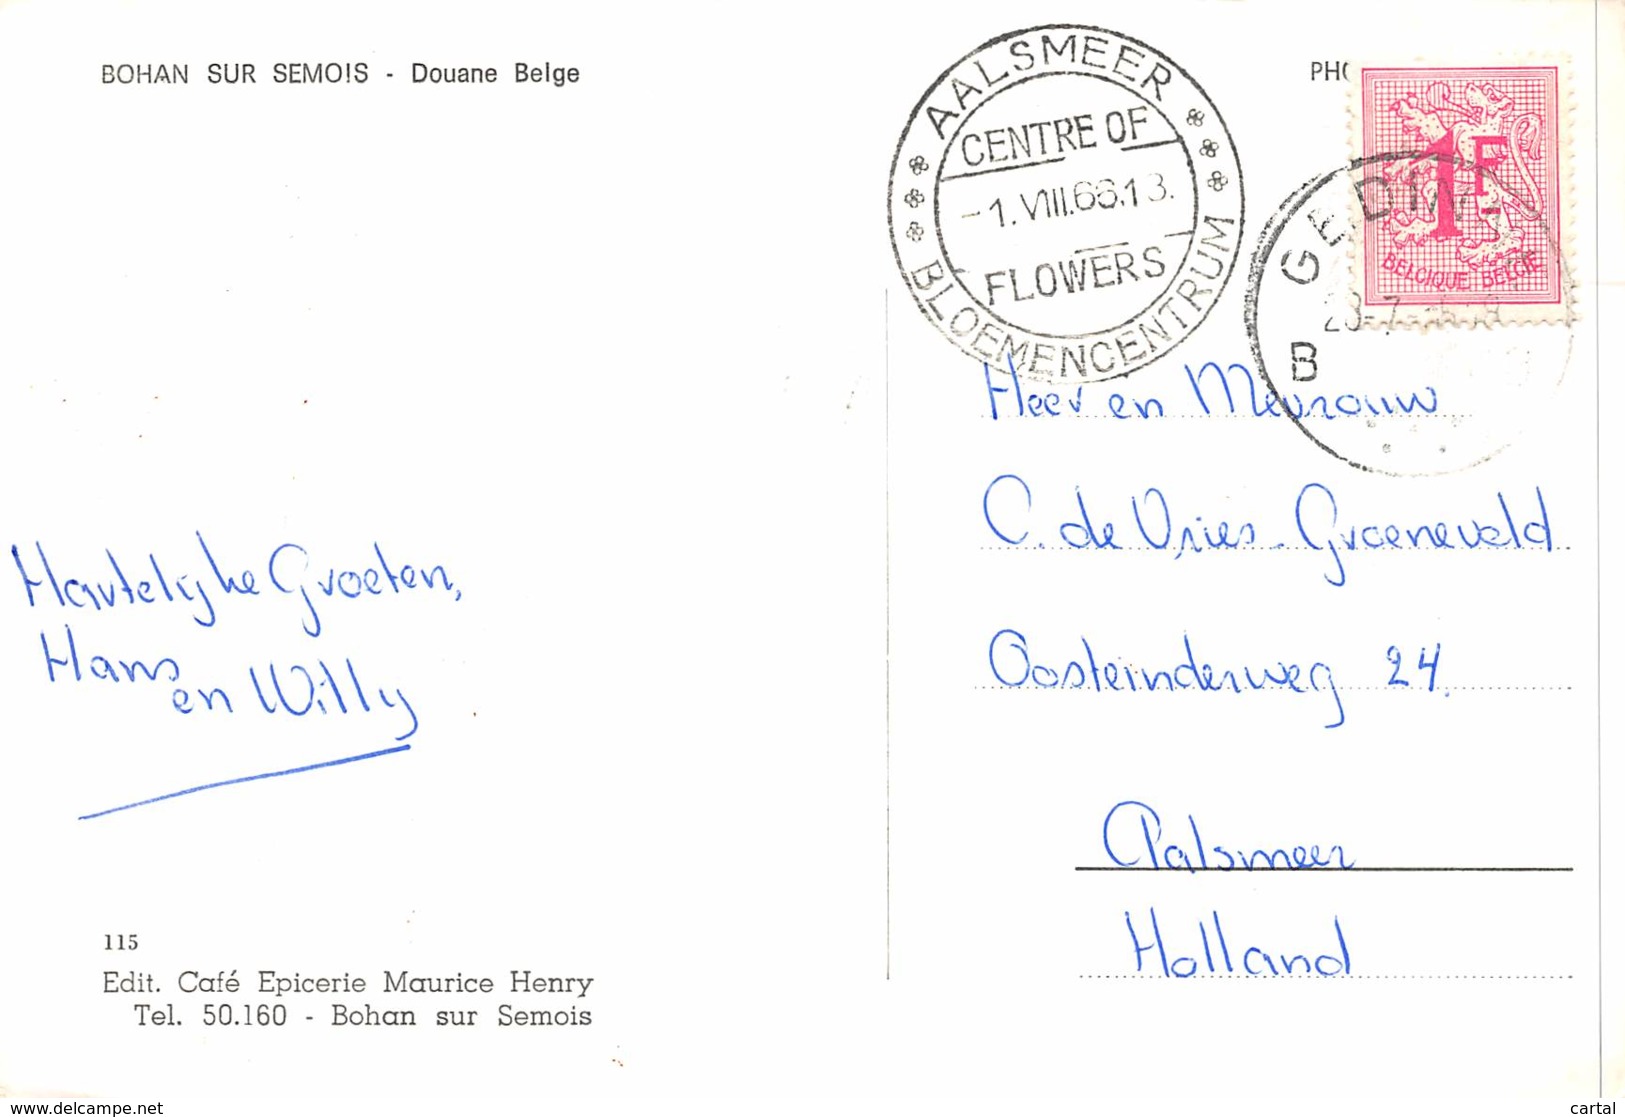 BOHAN SUR SEMOIS - Douane Belge
AALSMEER
CENTRE OF
-1.VIII.66.13.
FLOWERS
BLOEMENCENTRUM
1F
BELGIQUE BELGIE
GEDIN
B
Heer en Mevrouw
C. de Vries-Groeneveld
Oosteinderweg 24.
Aalsmeer
Holland
Hartelijke Groeten,
Hans
en Willy
115
Edit. Café Epicerie Maurice Henry
Tel. 50.160 - Bohan sur Semois
www.delcampe.net
cartal